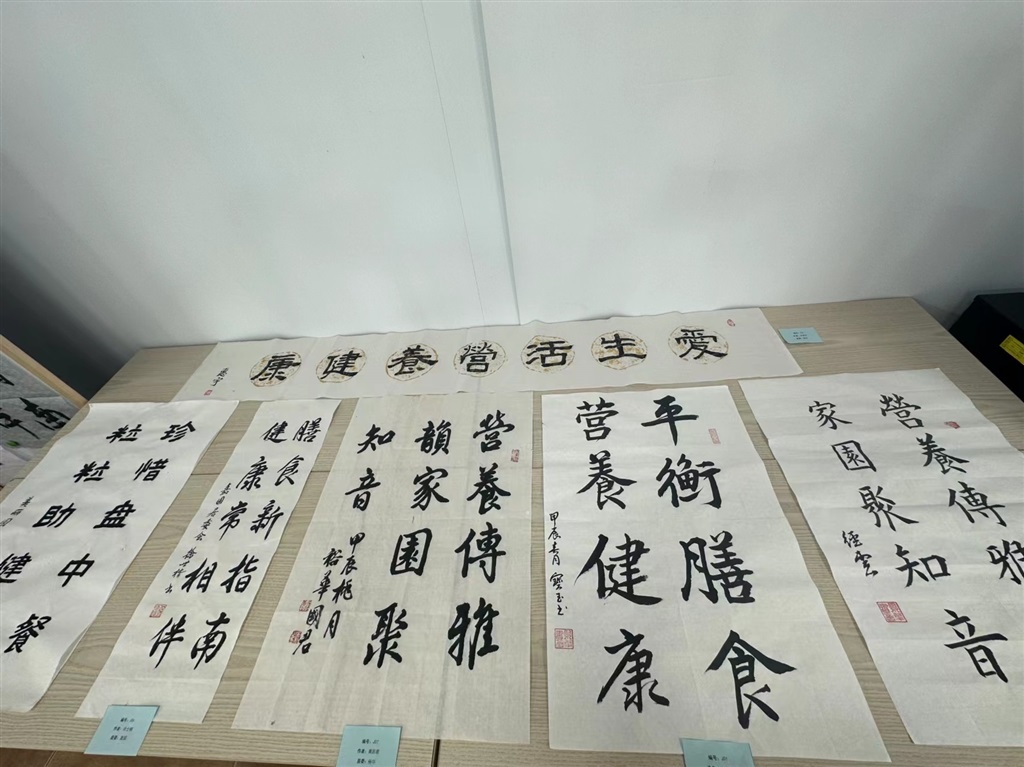 愛生活營養健康
珍惜盘中餐
粒粒助健
膳食新指南
健康常相伴
營養傳雅
韻家園聚
知音
甲辰桃月
裕華國君
平衡膳食
营養健康
營養傳雅
家園聚知音